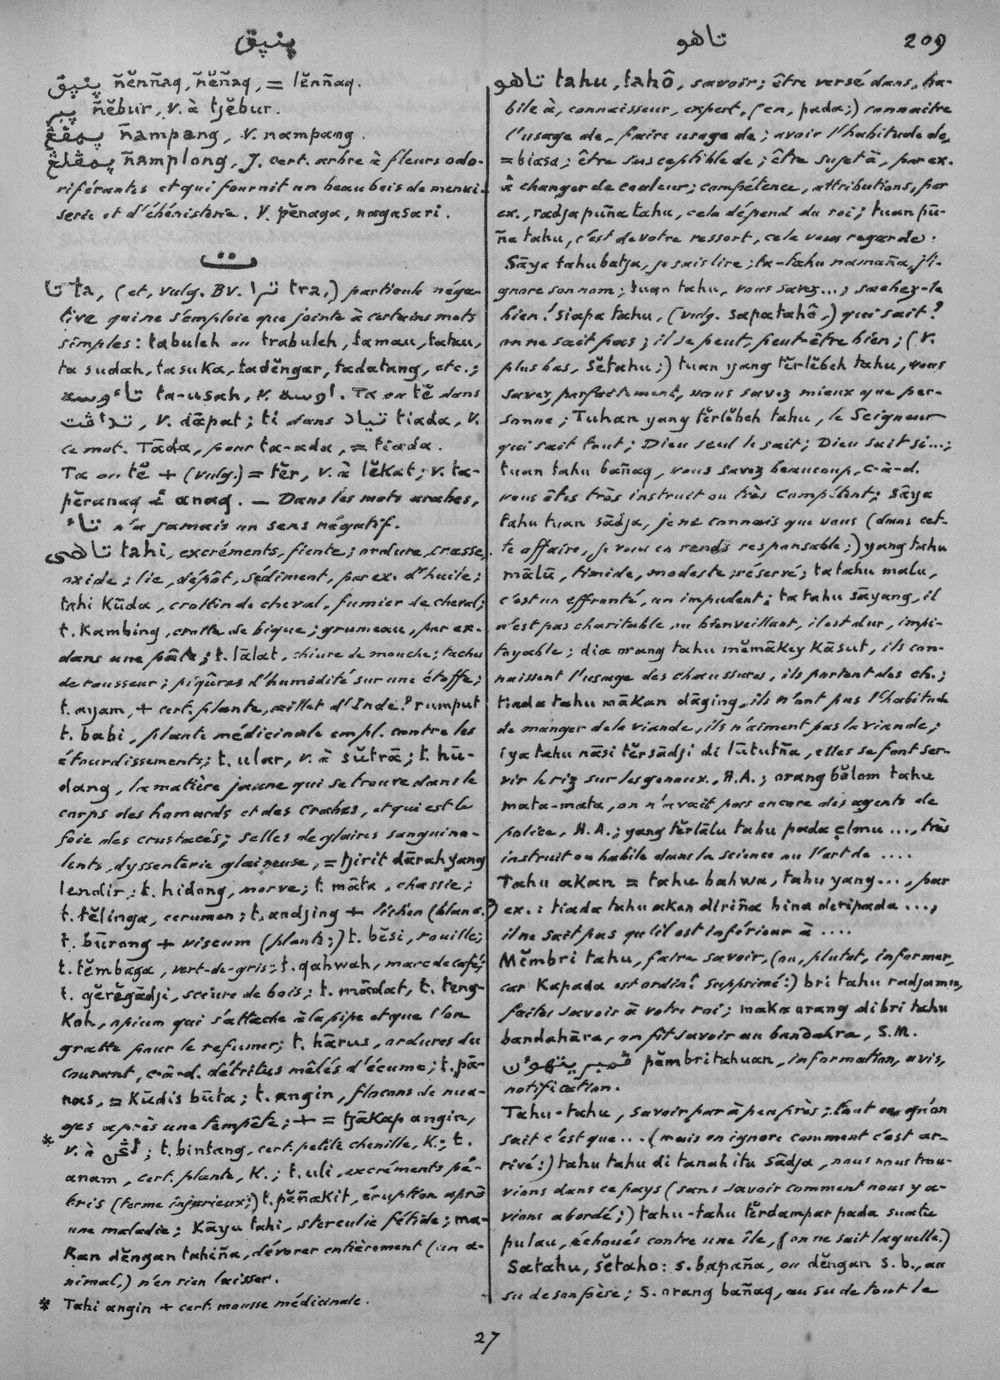 ڽنيق
تاهو
209
ڽنيق ñĕnñaq, ñĕñaq, = lĕnñaq.
ñĕbur, v. à tjĕbur.
ñampang, v. nampang.
ñamplong, J. cert. arbre à fleurs odo-
riférantes et qui fournit un beau bois de menui-
serie et d'ébénisterie. V. pĕnaga, nagasari.
ت
تا ta, (et, vulg. BV. ترا tra,) particule néga-
tive qui ne s'emploie que jointe à certains mots
simples: tabuleh ou trabuleh, tamau, tatau,
ta sudah, ta suka, tadĕngar, tadatang, etc.;
تاءوسه ta-usah, v. اوسه. Ta ou tĕ dans
تداڤت, v. dāpat; ti dans تياد tiada, v.
ce mot. Tāda, pour ta-ada, = tiada.
Ta ou tĕ + (vulg.) = tĕr, v. à lĕkat; v. ta-
pĕranaq à anaq. — Dans les mots arabes,
تاء n'a jamais un sens négatif.
تاهي tahi, excréments, fiente; ordure, crasse,
oxide; lie, dépôt, sédiment, par ex. de l'huile;
tahi kūda, crottin de cheval, fumier de cheval;
t. kambing, crotte de bique; grumeau, par ex.
dans une pâte; t. lālat, chiure de mouche; taches
de rousseur; piqûres d'humidité sur une étoffe;
t. ayam, + cert. plante, œillet d'Inde? rumput
t. babi, plante médicinale empl. contre les
étourdissements; t. ular, v. à sŭtrā; t. hū-
dang, la matière jaune qui se trouve dans le
corps des homards et des crabes, et qui est le
foie des crustacés; selles de glaires sanguino-
lents, dyssenterie glaireuse, = tjirit dārah yang
lendir; t. hidong, morve; t. māta, chassie;
t. tĕlinga, cerumen; t. andjing + lichen (blanc?)
t. būrong + viscum (plante;) t. bĕsi, rouille;
t. tĕmbaga, vert-de-gris; t. qahwah, marc de café;
t. gĕrĕgādji, sciure de bois; t. mādat, t. teng-
koh, opium qui s'attache à la pipe et que l'on
gratte pour le refumer; t. hārus, ordures du
courant, c-à-d. détritus mêlés d'écume; t. pā-
nas, = kūdis būta; t. angin, flocons de nua-
ges après une tempête; + = tjākap angin,
* v. à ; t. bintang, cert. petite chenille, K.; t.
anam, cert. plante, K.; t. uli, excréments pé-
tris (terme injurieux;) t. pĕñakit, éruption après
une maladie; kāyu tahi, sterculie fétide; ma-
kan dĕngan tahiña, dévorer entièrement (un a-
nimal,) n'en rien laisser.
* Tahi angin + cert. mousse médicinale.
تاهو tahu, tahô, savoir; être versé dans, ha-
bile à, connaisseur, expert, (en, pada;) connaître
l'usage de, faire usage de; avoir l'habitude de,
= biasa; être susceptible de; être sujet à, par ex.
à changer de couleur; compétence, attributions, par
ex., radja puña tahu, cela dépend du roi; tuan pū-
ña tahu, c'est de votre ressort, cela vous regarde.
Sāya tahu batja, je sais lire; ta-tahu namaña, j'i-
gnore son nom; tuan tahu, vous savez...; sachez-le
bien! siapa tahu, (vulg. sapa tahô,) qui sait?
on ne sait pas; il se peut, peut-être bien; (V.
plus bas, sĕtahu;) tuan yang tĕrlĕbeh tahu, vous
savez parfaitement, vous savez mieux que per-
sonne; Tuhan yang tĕrlĕbeh tahu, le Seigneur
qui sait tout; Dieu seul le sait; Dieu sait si...;
tuan tahu bañaq, vous savez beaucoup, c-à-d.
vous êtes très instruit ou très compétent; sāya
tahu tuan sādja, je ne connais que vous (dans cet-
te affaire, je vous en rends responsable;) yang tahu
mālū, timide, modeste, réservé; ta tahu malu,
c'est un effronté, un impudent; ta tahu sāyang, il
n'est pas charitable, ni bienveillant, il est dur, impi-
toyable; dia orang tahu mĕmākey kāsut, ils con-
naissent l'usage des chaussures, ils portent des ch.;
tiada tahu mākan dāging, ils n'ont pas l'habitude
de manger de la viande, ils n'aiment pas la viande;
iya tahu nāsi tĕrsādji di lūtutña, elles se font ser-
vir le riz sur les genoux, H.A.; orang bĕlom tahu
mata-mata, on n'avait pas encore des agents de
police, H.A.; yang tĕrlālu tahu pada elmu ..., très
instruit ou habile dans la science ou l'art de ....
Tahu akan = tahu bahwa, tahu yang..., par
ex.: tiada tahu akan diriña hina deripada ...,
il ne sait pas qu'il est inférieur à ....
Mĕmbri tahu, faire savoir, (ou, plutôt, informer,
car kapada est ordint supprimé:) bri tahu radjamu,
faites savoir à votre roi; maka orang di bri tahu
bandahāra, on fit savoir au bandahra, S.M.
ڤمبريتهوان pĕmbritahuan, information, avis,
notification.
Tahu-tahu, savoir par à peu près; tout ce qu'on
sait c'est que... (mais on ignore comment c'est ar-
rivé:) tahu tahu di tanah itu sādja, nous nous trou-
vions dans ce pays (sans savoir comment nous y a-
vions abordé;) tahu-tahu tĕrdampar pada suatu
pulau, échoués contre une île, (on ne sait laquelle.)
Satahu, sĕtaho: s. bapaña, ou dĕngan s. b., au
su de son père; s. orang bañaq, au su de tout le
27